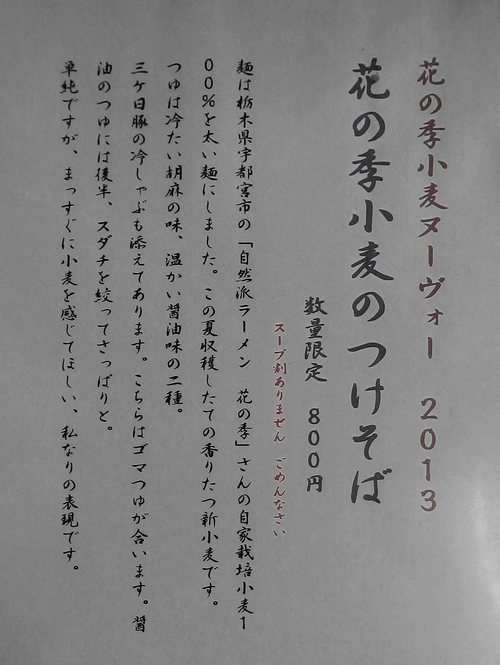 花の季小麦ヌーヴォー　2013
花の季小麦のつけそば
数量限定　800円
スープ割ありません　ごめんなさい
麺は栃木県宇都宮市の「自然派ラーメン　花の季」さんの自家栽培小麦1
00%を太い麺にしました。この夏収穫したての香りたつ新小麦です。
つゆは冷たい胡麻の味、温かい醤油味の二種。
三ケ日豚の冷しゃぶも添えてあります。こちらはゴマつゆが合います。醤
油のつゆには後半、スダチを絞ってさっぱりと。
単純ですが、まっすぐに小麦を感じてほしい、私なりの表現です。